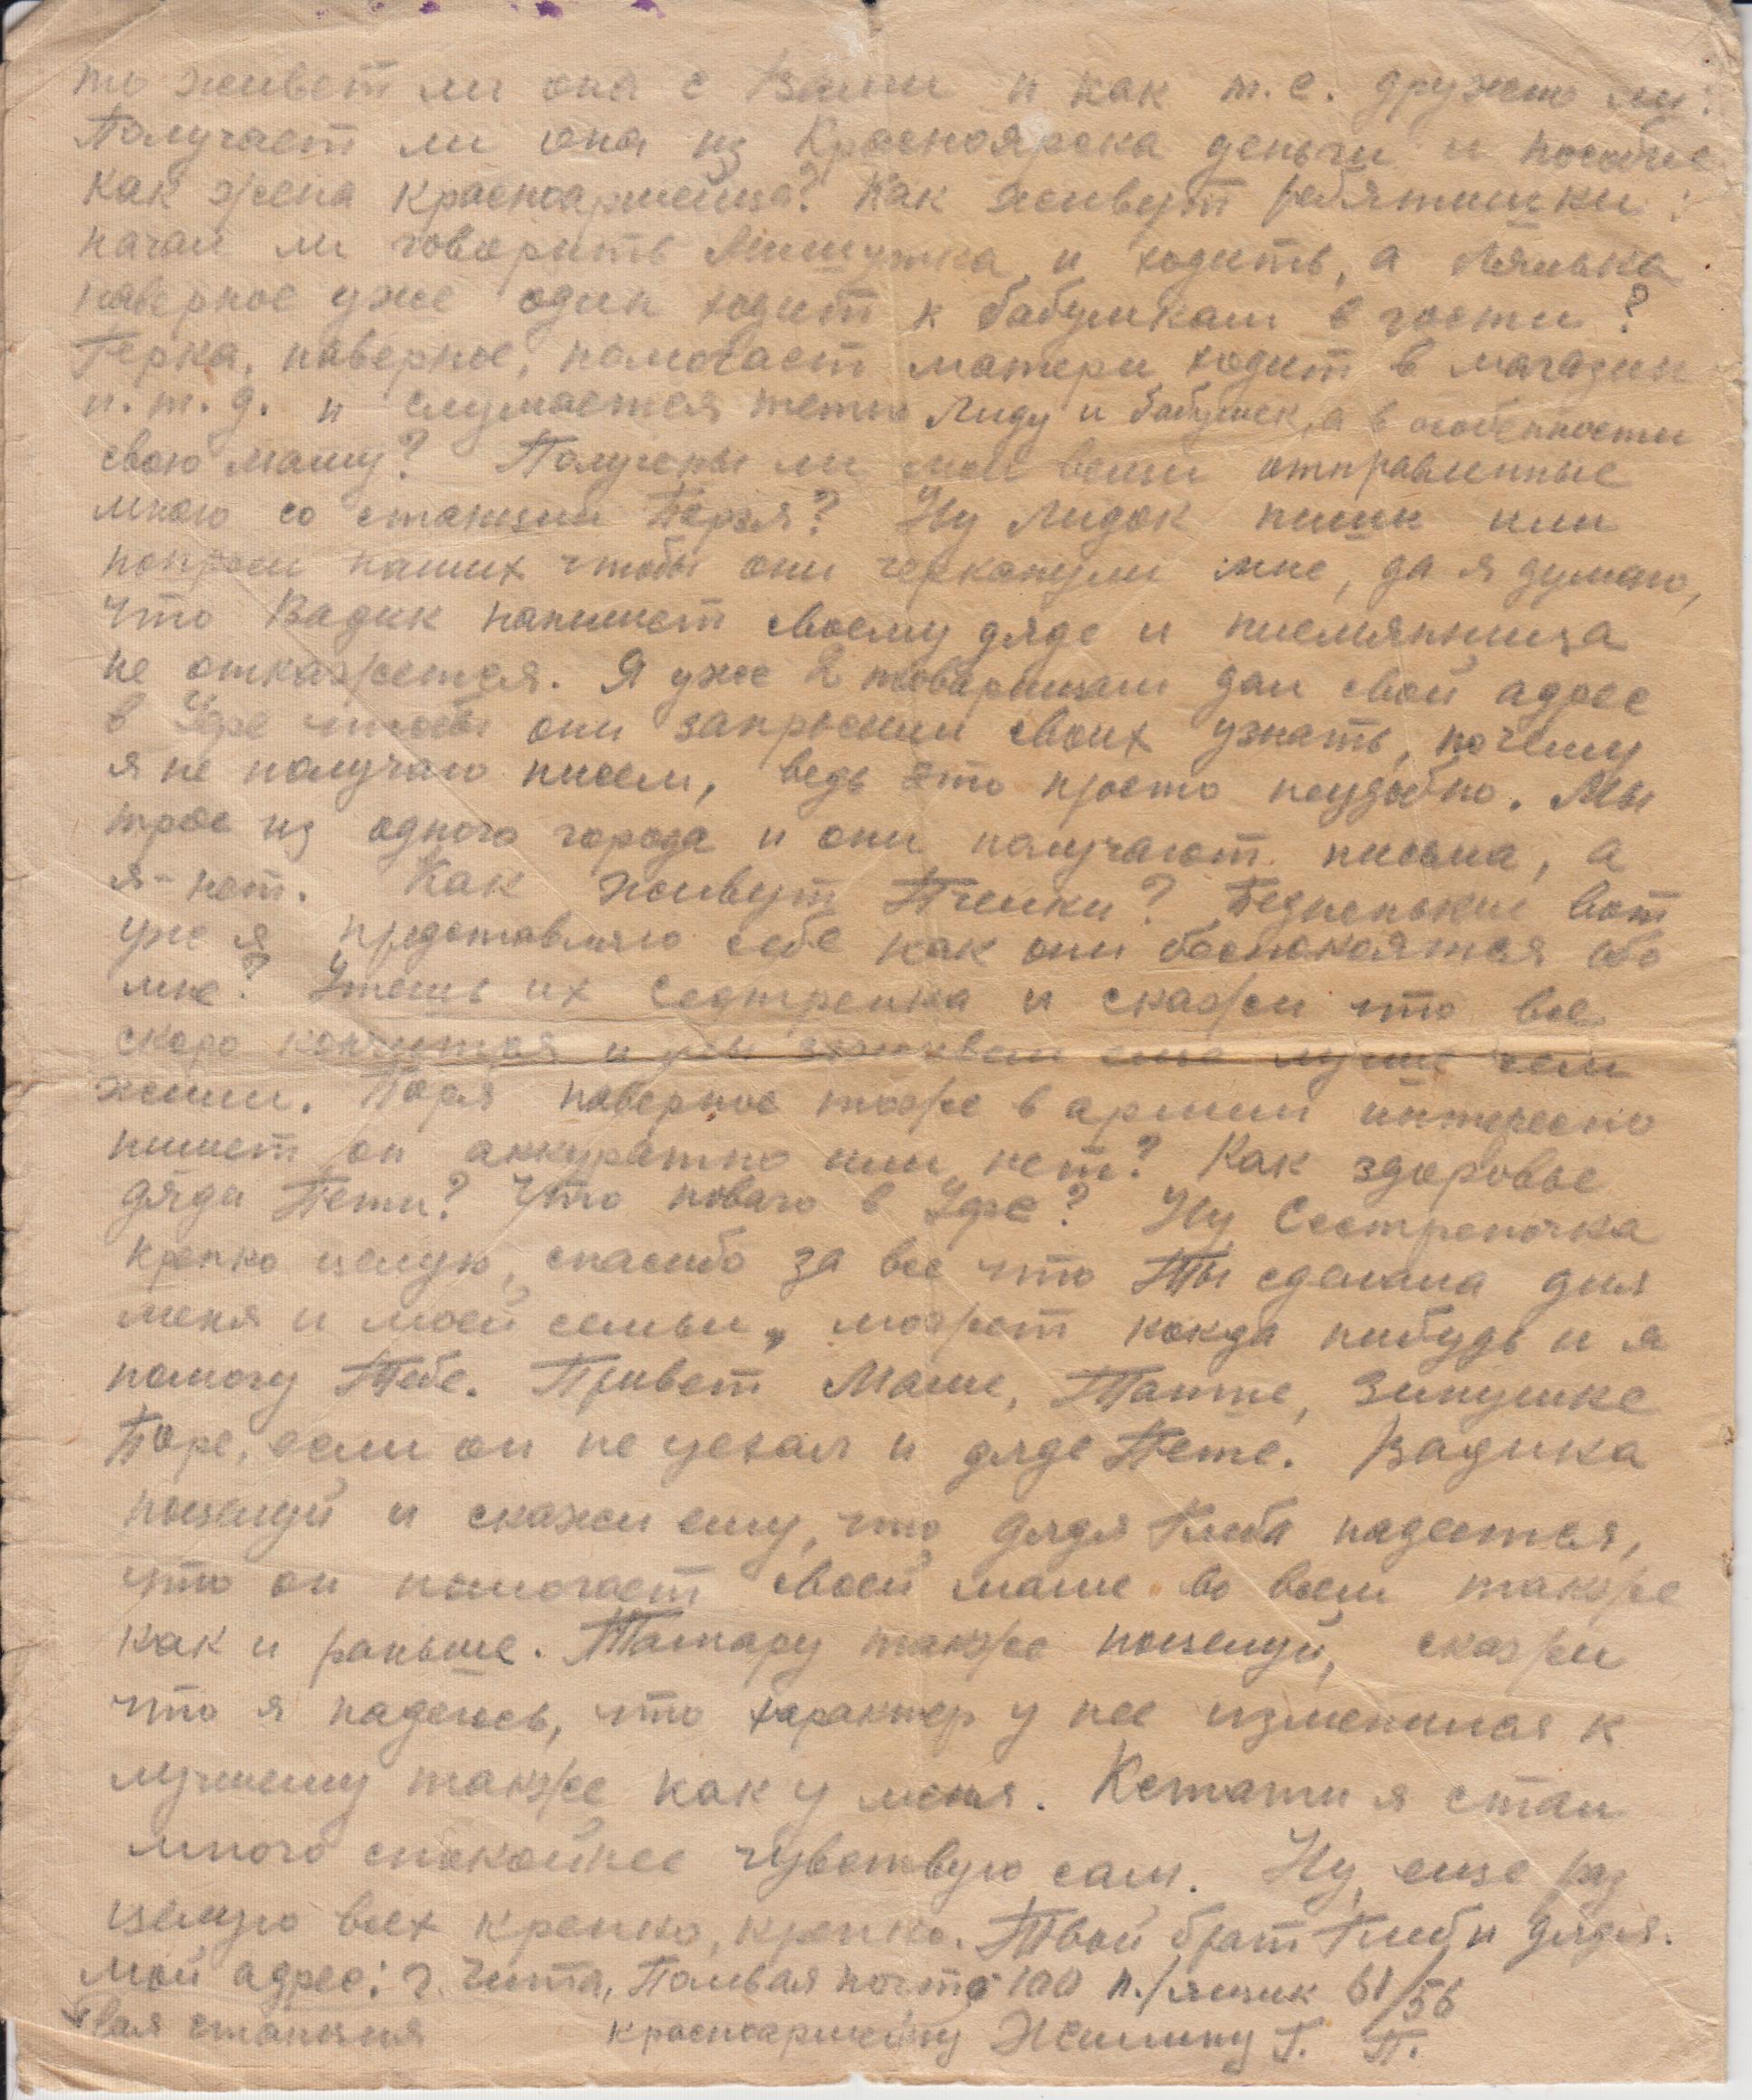 то живет ли она с Вами и как т.е. дружно ли?
Получает ли она из Красноярска деньги и пособие
как жена красноармейца? Как живут ребятишки:
начал ли говорить Мишутка и ходить, а Лялька
наверное уже один ходит к бабушкам в гости?
Герка, наверное, помогает матери ходит в магазин
и.т.д. и слушается тетю Лиду и бабушек, а в особенности
свою маму? Получены ли мои вещи отправленные
мною со станции? Ну Лидок пиши или
попроси наших чтобы они черканули мне, да я думаю,
что Вадик напишет своему дяде и племянница
не откажется. Я уже 2 товарищам дал свой адрес
в Уфе чтобы они запросили своих узнать, почему
я не получаю писем, ведь это просто неудобно. Мы
трое из одного города и они получают письма, а
я-нет. Как живут? Бедненькие вот
уже я представляю себе как они беспокоятся обо
мне? Утешь их Сестренка и скажи что все
скоро кончится и мы заживем еще лучше чем
жили. Боря наверное тоже в армии интересно
пишет он аккуратно или нет? Как здоровье
дяди Пети? Что нового в Уфе? Ну Сестреночка
крепко целую, спасибо за все что Ты сделала для
меня и моей семьи, может когда нибудь и я
помогу Тебе. Привет Маме, Зинушке
Боре, если он не уехал и дяде Пете. Вадика
поцелуй и скажи ему, что дядя Глеба надеется,
что он помогает своей маме во всем также
как и раньше. Тамару также поцелуй, скажи
что я надеюсь, что характер у нее изменился к
лучшему также как у меня. Кстати я стал
много спокойнее чувствую сам. Ну, еще раз
целую всех крепко, крепко. Твой брат Глеб и дядя.
Мой адрес: г. Чита, Полевая почта 100 п./ящик 61/56
вая станция красноармейцу Жилину Г. П.